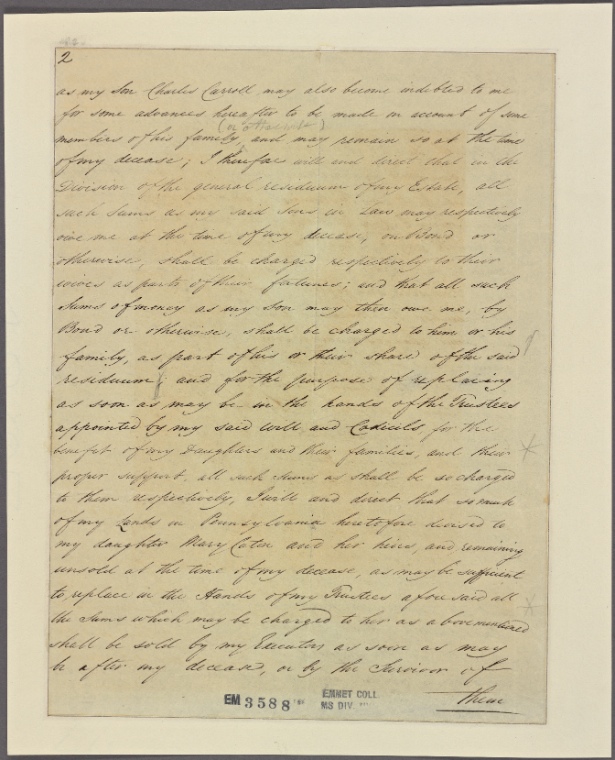 2
as my Son Charles Carroll may also become indebted to me
for some advances hereafter to be made on account of some
(or otherwise)
members of his family, and may remain so at the time
of my decease; I therefore will and direct that in the
Division of the general residuum of my Estate, all
such Sums as my said Sons in Law may respectively
owe me at the time of my decease, on Bond or
otherwise, shall be charged respectively to their
wives as parts of their fortunes; and that all such
Sums of money as my son may then owe me, by
Bond or otherwise, shall be charged to him or his
family, as part of his or their share of the said
residuum; and for the purpose of replacing
as soon as may be in the hands of the Trustees
appointed by my said will and Codicils, for the
benefit of my Daughters and their families, and their
proper support, all such Sums as shall be so charged
to them respectively, I will and direct that so much
of my Lands in Pennsylvania heretofore devised to
my daughter Mary Caton and her heirs, and remaining
unsold at the time of my decease, as may be sufficient
to replace in the Hands of my Trustees aforesaid all
the Sums which may be charged to her as abovementioned
shall be sold by my Executors as soon as may
be after my decease, or by the Survivor of
them
EM 3588
EMMET COLL.
MS DIV.